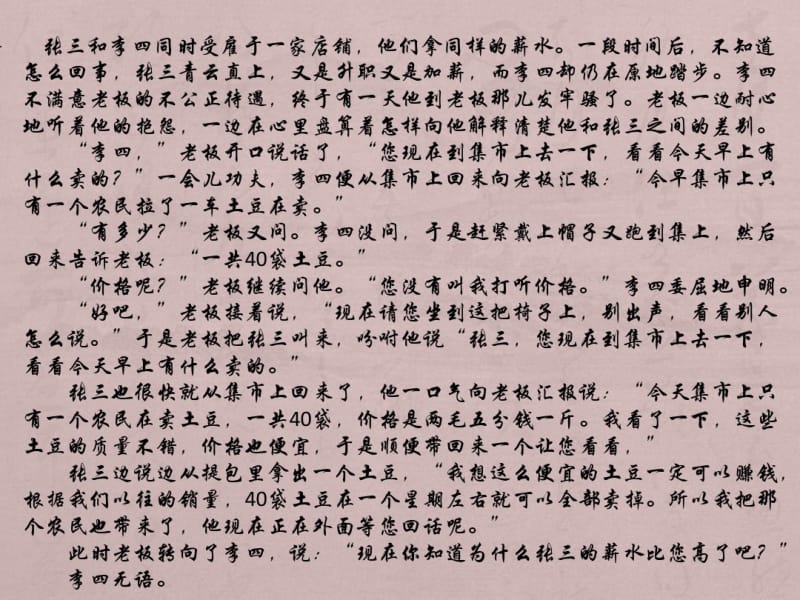 张三和李四同时受雇于一家店铺，他们拿同样的薪水。一段时间后，不知道
怎么回事，张三青云直上，又是升职又是加薪，而李四却仍在原地踏步。李四
不满意老板的不公正待遇，终于有一天他到老板那儿发牢骚了。老板一边耐心
地听着他的抱怨，一边在心里盘算着怎样向他解释清楚他和张三之间的差别。
“李四，”老板开口说话了，“您现在到集市上去一下，看看今天早上有
什么卖的？”一会儿功夫，李四便从集市上回来向老板汇报：“今早集市上只
有一个农民拉了一车土豆在卖。”
“有多少？”老板又问。李四没问，于是赶紧戴上帽子又跑到集上，然后
回来告诉老板：“一共40袋土豆。”
“价格呢？”老板继续问他。“您没有叫我打听价格。”李四委屈地申明。
“好吧，”老板接着说，“现在请您坐到这把椅子上，别出声，看看别人
怎么说。”于是老板把张三叫来，吩咐他说“张三，您现在到集市上去一下，
看看今天早上有什么卖的。”
张三也很快就从集市上回来了，他一口气向老板汇报说：“今天集市上只
有一个农民在卖土豆，一共40袋，价格是两毛五分钱一斤。我看了一下，这些
土豆的质量不错，价格也便宜，于是顺便带回来一个让您看看，”
张三边说边从提包里拿出一个土豆，“我想这么便宜的土豆一定可以赚钱，
根据我们以往的销量，40袋土豆在一个星期左右就可以全部卖掉。所以我把那
个农民也带来了，他现在正在外面等您回话呢。”
此时老板转向了李四，说：“现在你知道为什么张三的薪水比您高了吧？”
李四无语。